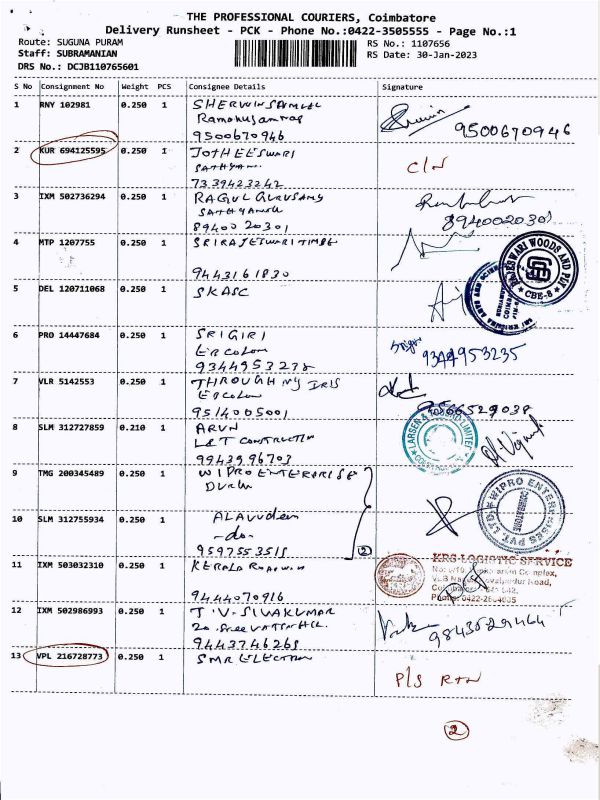 THE PROFESSIONAL COURIERS, Coimbatore
Delivery Runsheet - PCK - Phone No.:0422-3505555 - Page No.:1
Route: SUGUNA PURAM
RS No.: 1107656
Staff: SUBRAMANIAN
RS Date: 30-Jan-2023
DRS No.: DCJB110765601
S No Consignment No Weight PCS Consignee Details Signature
1 RNY 102981 0.250 1 SHERWIN SAMUEL
9500670946
9500670946
2 KUR 694125595 0.250 1 JOTHEESWARI
7339423242
3 IXM 502736294 0.250 1 RAGUL GURUSAMY
8940020301
8940020301
4 MTP 1207755 0.250 1 SRI RAJESWARI TIMBE
9443161830
RAJESWARI WOODS AND PLY
CBE-8
5 DEL 120711068 0.250 1 SKASC
6 PRO 14447684 0.250 1 SRIGIRI
9344953278
9344953235
7 VLR 5142553 0.250 1 THROUGH NY IRIS
9514005001
8 SLM 312727859 0.210 1 ARUN
L&T CONSTRUCTION
9943996703
LARSEN & TOUBRO LIMITED
9 TMG 200345489 0.250 1 WIPRO ENTERPRISE
WIPRO ENTERPRISES PVT. LTD.
COIMBATORE
10 SLM 312755934 0.250 1
-do-
9597553518
2
11 IXM 503032310 0.250 1 KERALA
9444070916
KRS-LOGISTIC SERVICE
12 IXM 502986993 0.250 1 T.V. SIVAKUMAR
9443746268
13 VPL 216728773 0.250 1 SMR ELECTRON
P/S RTN
2